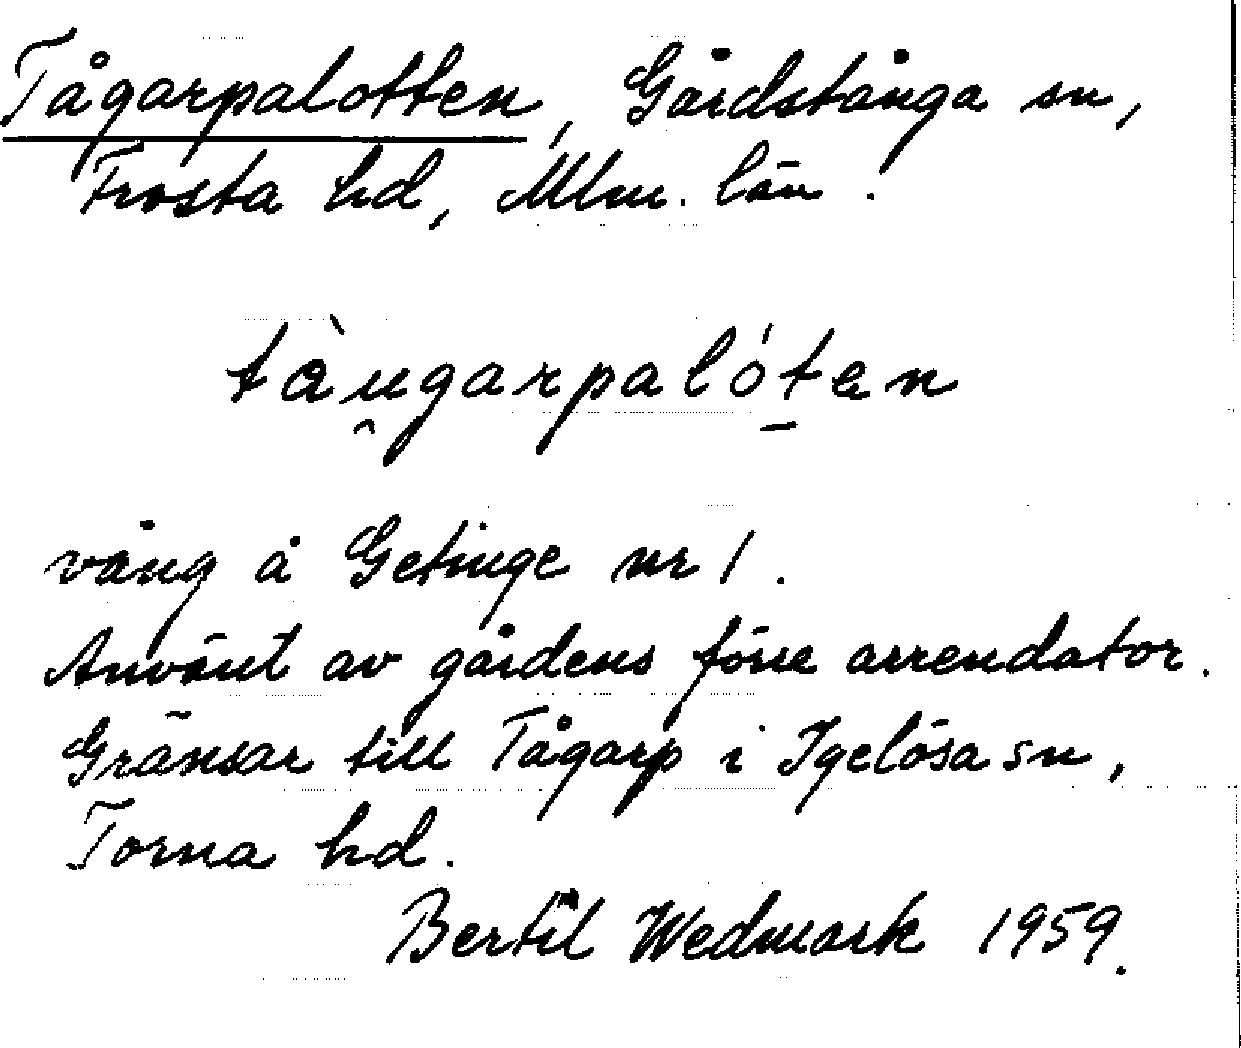 Tågarpalotten, Gårdstånga sn,
Frosta hd, Mlm. län.
tàu̯garpalót̠en
vång å Getinge nr 1.
Använt av gårdens förre arrendator.
Gränsar till Tågarp i Igelösa sn,
Torna hd.
Bertil Wedmark 1959.